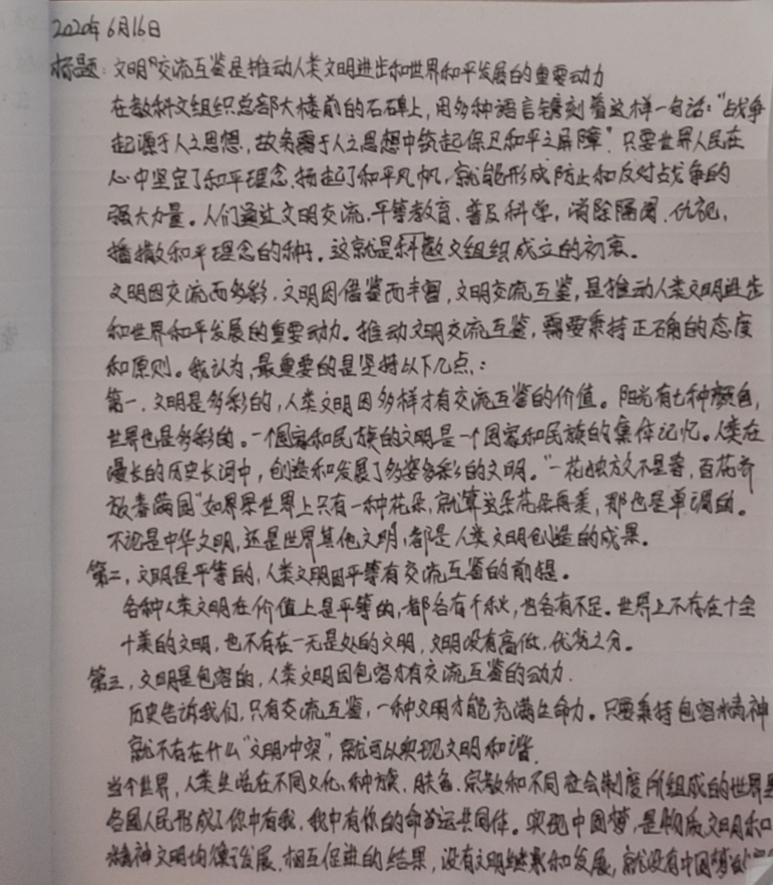 2020年6月16日
标题:文明"交流互鉴是推动人类文明进步和世界和平发展的重要动力
在教科文组织总部大楼前的石碑上,用多种语言镌刻着这样一句话:"战争
起源于人之思想,故务需于人之思想中筑起保卫和平之屏障".只要世界人民在
心中坚定了和平理念、扬起了和平风帆,就能形成防止和反对战争的
强大力量。人们通过文明交流、平等教育、普及科学,消除隔阂、仇视,
播撒和平理念的种子。这就是科教文组织成立的初衷。
文明因交流而多彩,文明因借鉴而丰富,文明交流互鉴,是推动人类文明进步
和世界和平发展的重要动力。推动文明交流互鉴,需要秉持正确的态度
和原则。我认为,最重要的是坚持以下几点:
第一.文明是多彩的,人类文明因多样才有交流互鉴的价值。阳光有七种颜色,
世界也是多彩的。一个国家和民族的文明是一个国家和民族的集体记忆。人类在
漫长的历史长河中,创造和发展了多姿多彩的文明。"一花独放不是春,百花齐
放春满园"如界果世界上只有一种花朵,就算这朵花朵再美,那也是单调的。
不论是中华文明,还是世界其他文明,都是人类文明创造的成果。
第二,文明是平等的,人类文明因平等有交流互鉴的前提。
各种人类文明在价值上是平等的,都各有千秋,也各有不足。世界上不存在十全
十美的文明,也不存在一无是处的文明,文明没有高低,优劣之分。
第三,文明是包容的,人类文明因包容才有交流互鉴的动力.
历史告诉我们,只有交流互鉴,一种文明才能充满生命力。只要秉持包容精神
就不存在什么"文明冲突",就可以实现文明和谐.
当个世界,人类生活在不同文化、种族、肤色、宗教和不同社会制度所组成的世界里
各国人民形成了你中有我,我中有你的命运共同体。实现中国梦,是物质文明和
精神文明均衡发展、相互促进的结果,没有文明继承和发展,就没有中国梦的